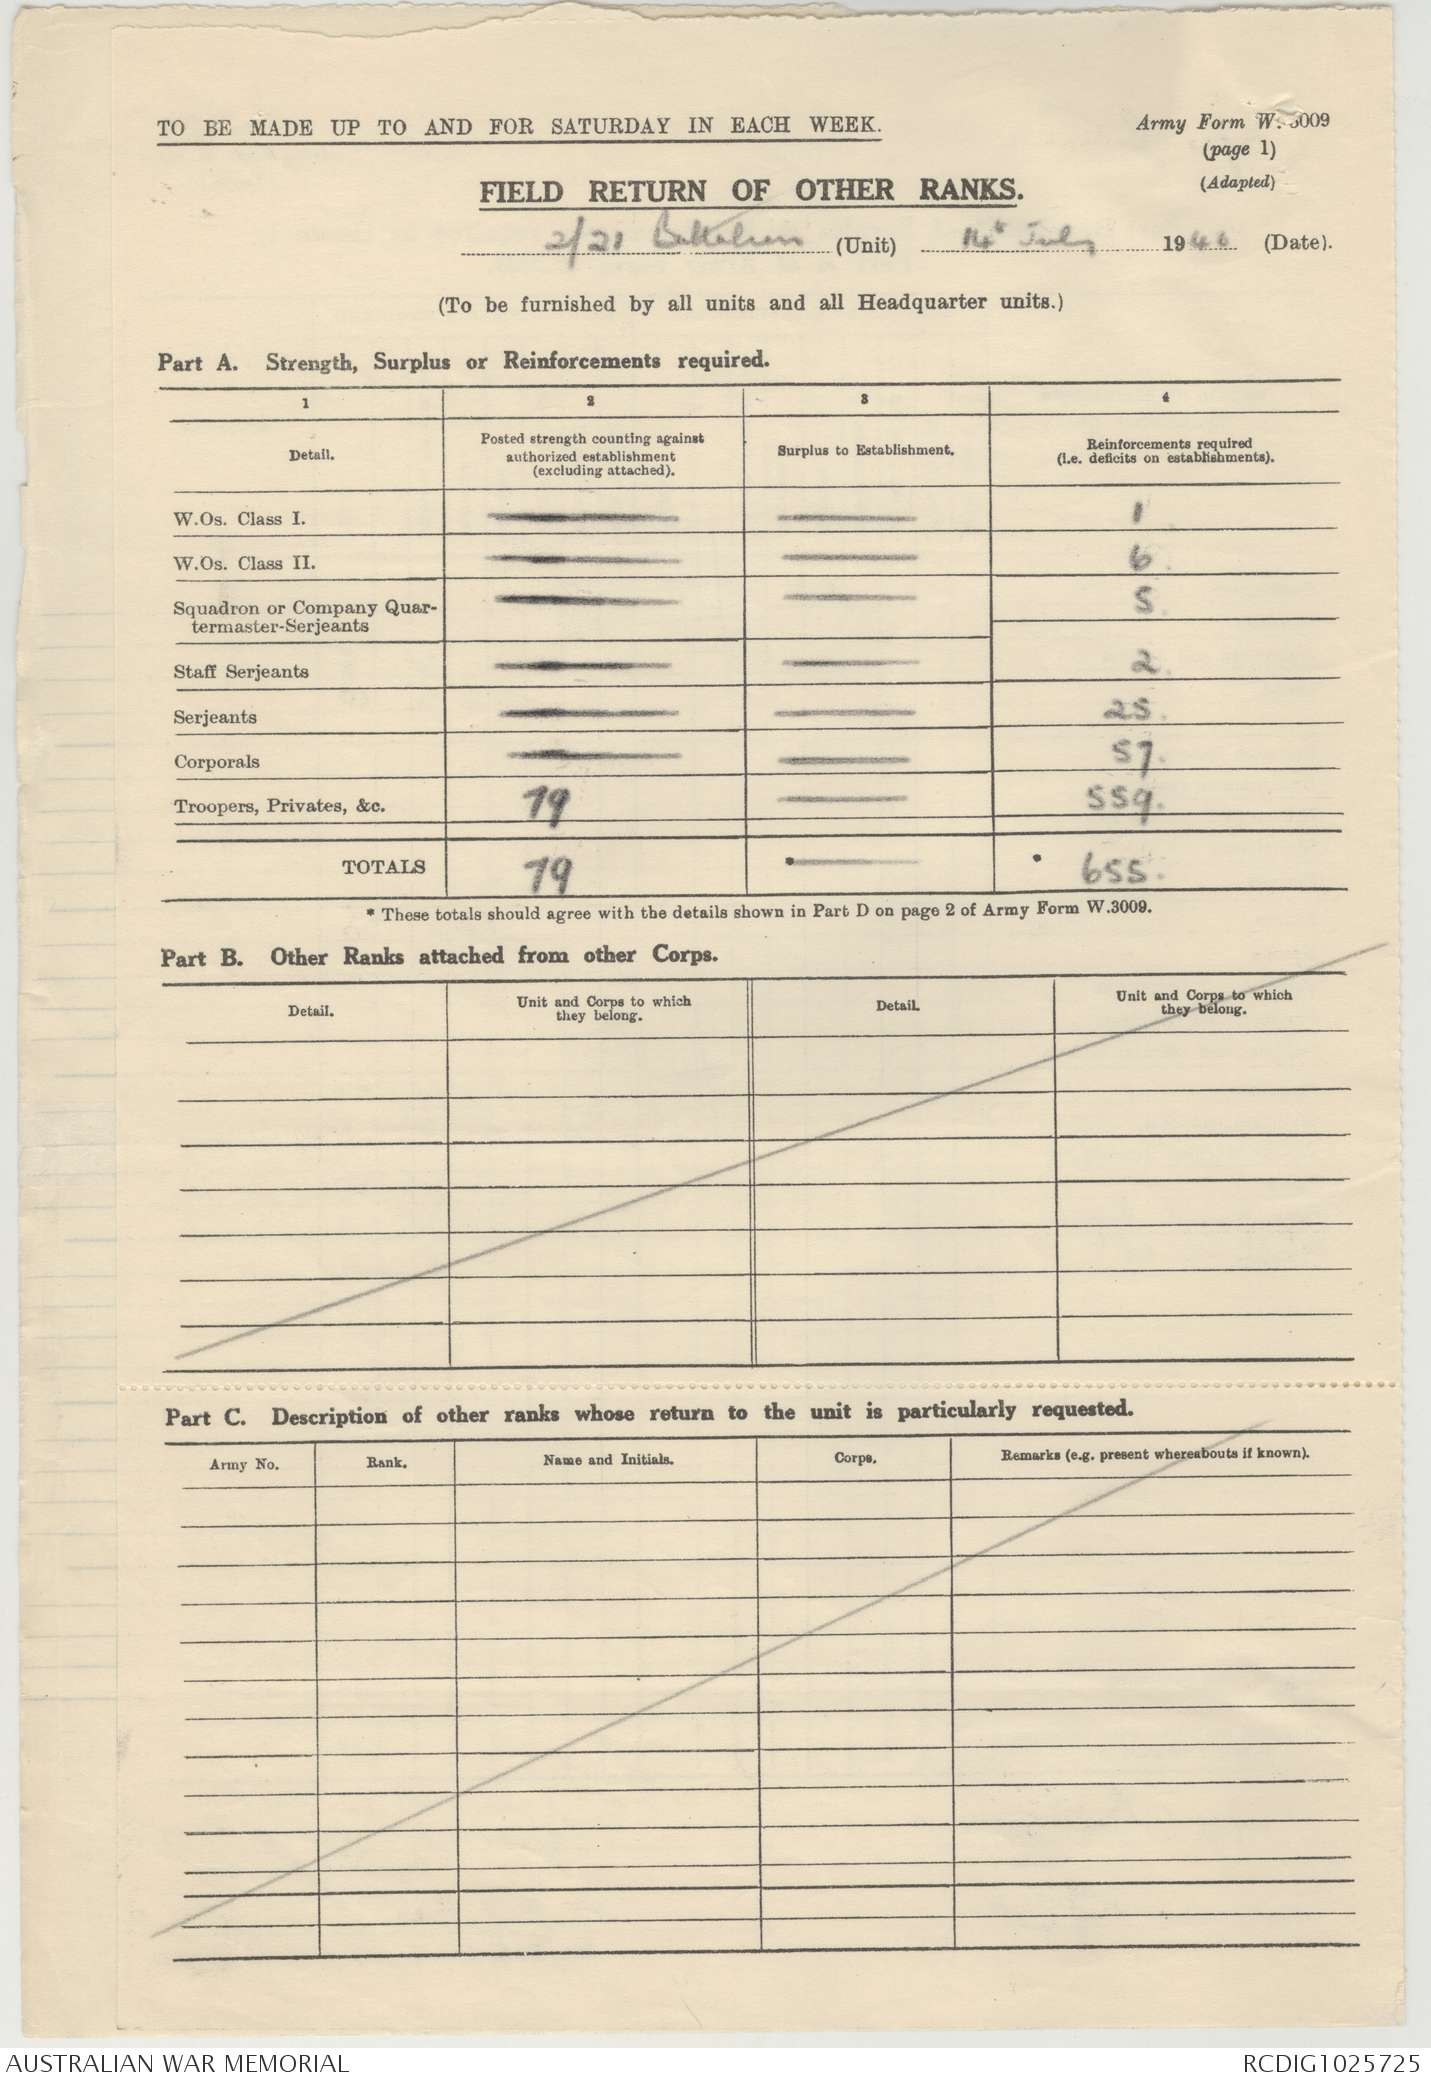 TO BE MADE UP TO AND FOR SATURDAY IN EACH WEEK.
Army Form W. 3009
(page 1)
(Adapted)
FIELD RETURN OF OTHER RANKS.
2/21 Battalion (Unit) 14th July 1940 (Date).
(To be furnished by all units and all Headquarter units.)
Part A. Strength, Surplus or Reinforcements required.
1 2 3 4
Detail. Posted strength counting against authorized establishment (excluding attached). Surplus to Establishment. Reinforcements required (i.e. deficits on establishments).
W.Os. Class I. — — 1
W.Os. Class II. — — 6.
Squadron or Company Quar-
termaster-Serjeants — — 5
Staff Serjeants — — 2.
Serjeants — — 25.
Corporals — — 57.
Troopers, Privates, &c. 79 — 559.
TOTALS 79 * — * 655.
* These totals should agree with the details shown in Part D on page 2 of Army Form W.3009.
Part B. Other Ranks attached from other Corps.
Detail. Unit and Corps to which they belong. Detail. Unit and Corps to which they belong.
Part C. Description of other ranks whose return to the unit is particularly requested.
Army No. Rank. Name and Initials. Corps. Remarks (e.g. present whereabouts if known).
AUSTRALIAN WAR MEMORIAL RCDIG1025725